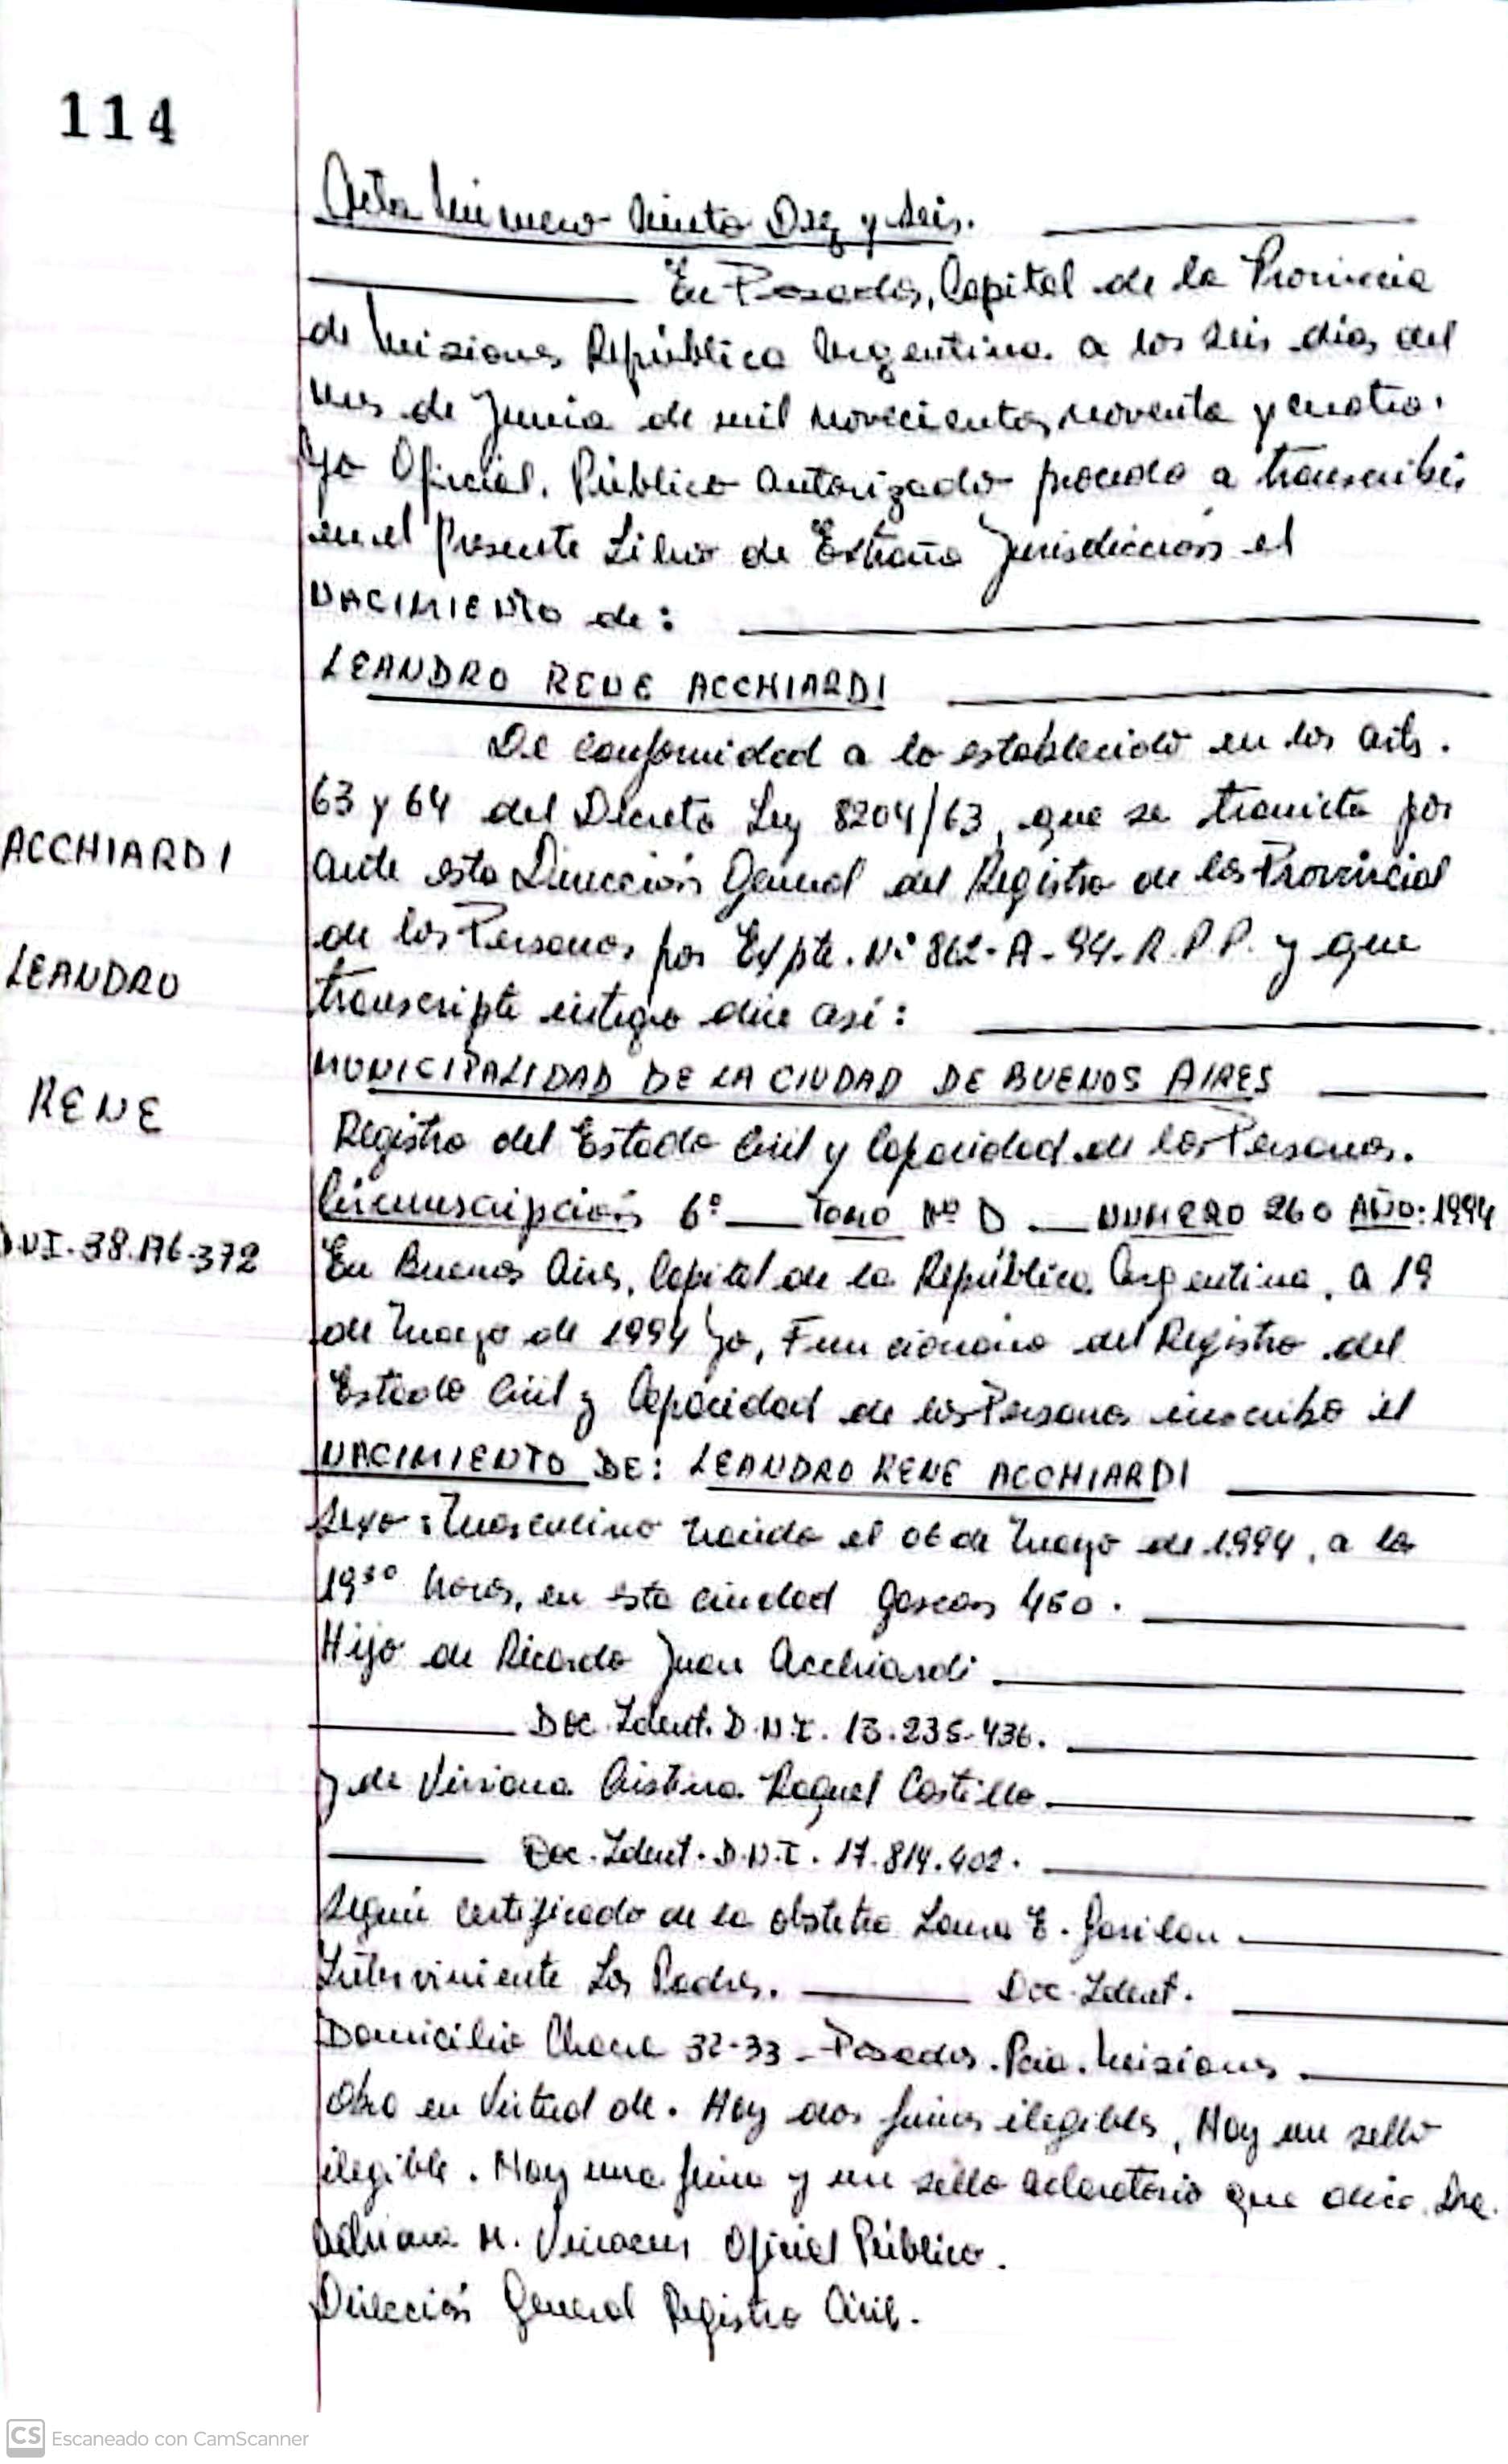 114
Acta Número Ciento Diez y Seis.
En Posadas, Capital de la Provincia
de Misiones República Argentina. a los seis dias del
mes de Junio de mil novecientos noventa y cuatro.
Yo Oficial. Público autorizado procedo a transcribir
en el Presente Libro de Extraña Jurisdicción el
NACIMIENTO de:
LEANDRO RENE ACCHIARDI
De conformidad a lo establecido en los arts.
63 y 64 del Decreto Ley 8204/63, que se tramita por
ACCHIARDI
ante esta Dirección General del Registro de los Provincial
de las Personas, por Expte. Nº 862-A-94-R.P.P. y que
LEANDRO
transcripta integro dice así:
MUNICIPALIDAD DE LA CIUDAD DE BUENOS AIRES
RENE
Registro del Estado Civil y Capacidad de las Personas.
Circunscripción 6º Tomo Nº D NUMERO 260 AÑO: 1994
D.N.I. 38.196.372
En Buenos Aires, Capital de la República Argentina, a 19
de Mayo de 1994 Yo, Funcionario del Registro del
Estado Civil y Capacidad de las Personas inscribo el
NACIMIENTO DE: LEANDRO RENE ACCHIARDI
Sexo: Masculino nacido el 06 de Mayo de 1.994, a las
19³⁰ horas, en esta ciudad Gascon 450.
Hijo de Ricardo Juan Acchiardi
Doc. Ident. D.N.I. 13.235.436.
y de Viviana Cristina Raquel Castillo.
Doc. Ident. D.N.I. 17.814.402.
Según certificado de la obstetra Laura E.
Interviniente Los Padres. Doc. Ident.
Domicilio Chacra 32-33 - Posadas. Pcia. Misiones.
Obra en Virtud de. Hay dos firmas ilegibles, Hay un sello
ilegible. Hay una firma y un sello aclaratorio que dice. Dra.
Adriana M. Oficial Público.
Dirección General Registro Civil.
CS Escaneado con CamScanner